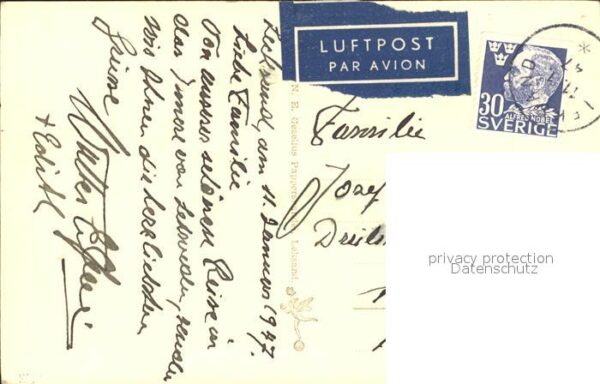 Leksand, am 11. Januar 1947.
Liebe Familie
Von unserer schönen Reise in
das Innere von Schweden, senden
wir Ihnen die herzlichsten
Grüsse
+ Edith
N. E. Gezelius Pappershandel, Leksand.
LUFTPOST
PAR AVION
30
ALFRED NOBEL
SVERIGE
Familie
Josef
privacy protection
Datenschutz